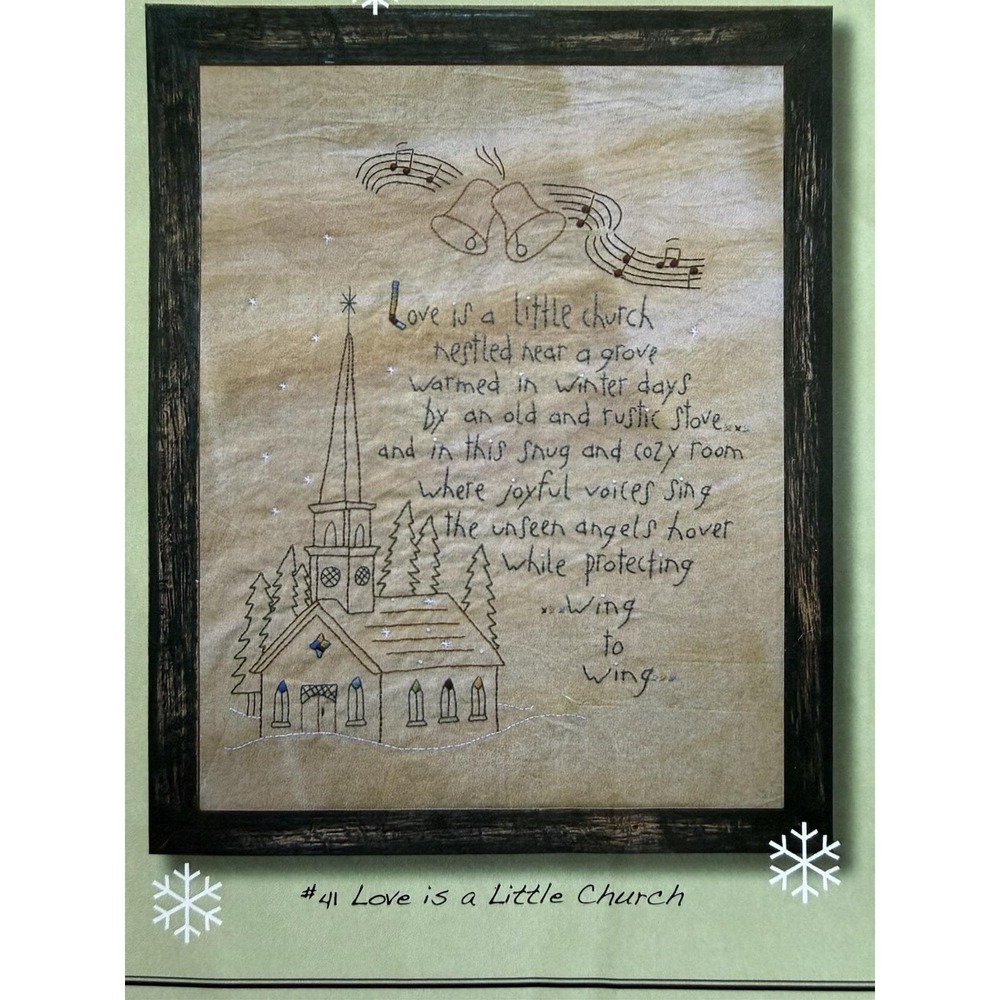 Love is a little church
nestled near a grove
warmed in winter days
by an old and rustic stove...
and in this snug and cozy room
where joyful voices sing
the unseen angels hover
while protecting
...wing
to
wing...
#41 Love is a Little Church